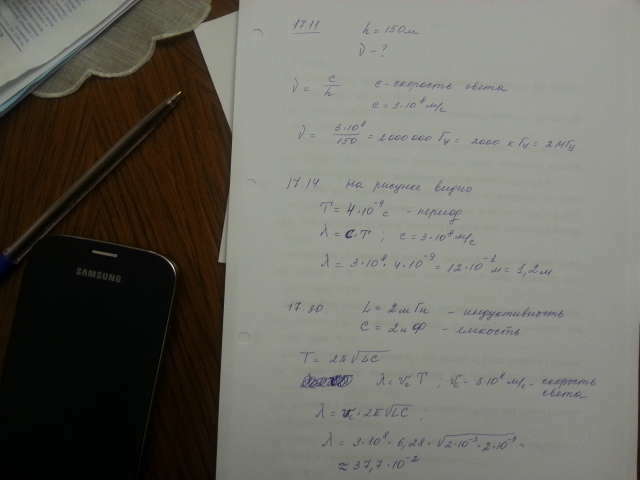 17.11 h = 150 м
ν - ?
ν = c/h c - скорость света
c = 3·10⁸ м/с
ν = 3·10⁸/150 = 2000 000 Гц = 2000 кГц = 2 МГц
17.14 на рисунке видно
T = 4·10⁻⁹ с - период
λ = c·T ; c = 3·10⁸ м/с
λ = 3·10⁸ · 4·10⁻⁹ = 12·10⁻¹ м = 1,2 м
17.30 L = 2 мГн - индуктивность
C = 2 нФ - емкость
SAMSUNG
T = 2π√LC
λ = v₀T ; v₀ = 3·10⁸ м/с - скорость
света
λ = v₀·2π√LC ;
λ = 3·10⁸ · 6,28 · √2·10⁻³·2·10⁻⁹ =
≈ 37,7·10⁻²